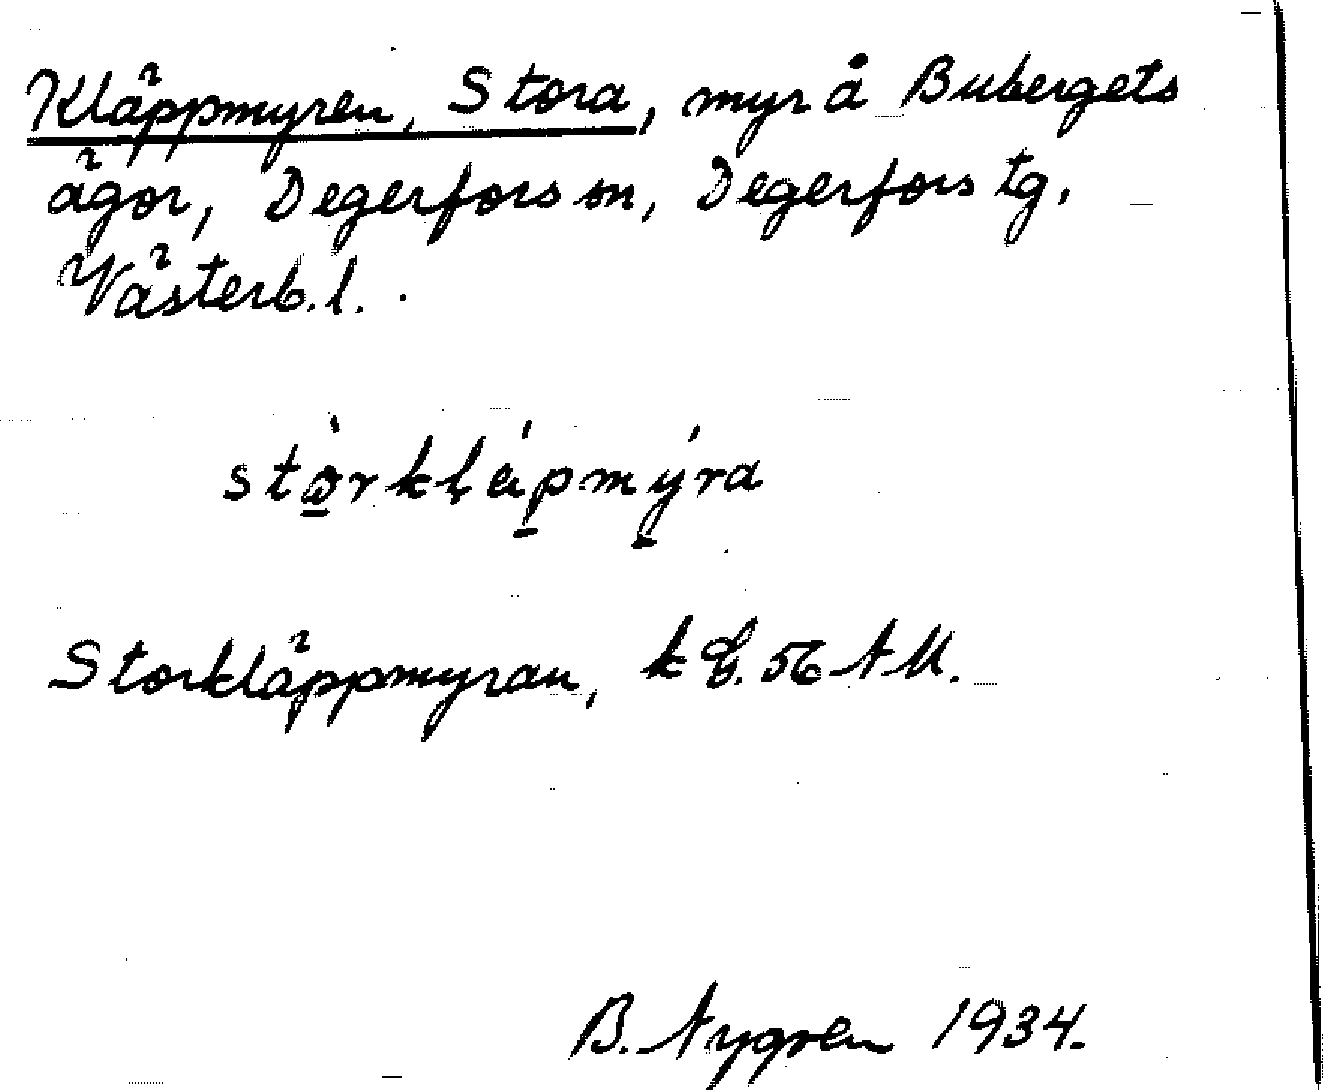 Kläppmyren, Stora, myr å Bubergets
ägor, Degerfors sn, Degerfors tg,
Västerb. l.
stòrkḷápmýra
Storkläppmyran, k 56 NM.
B. Nygren 1934.